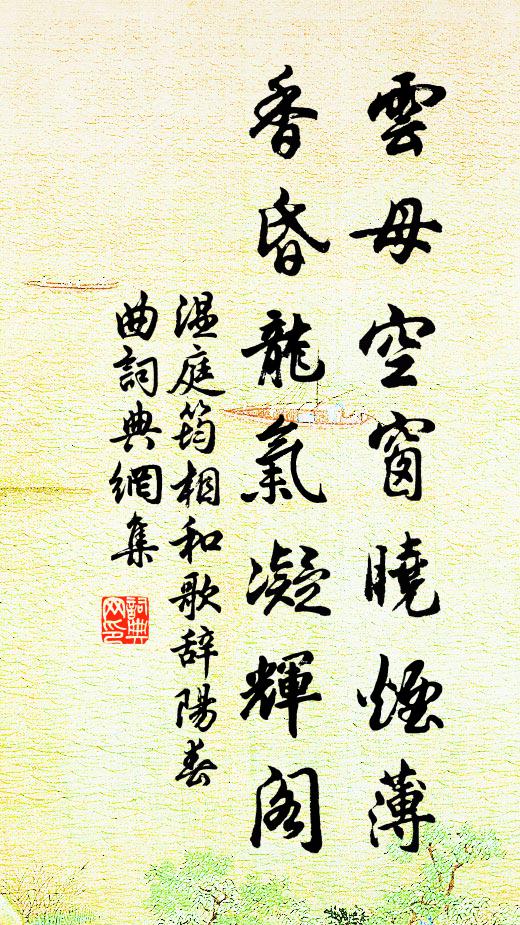 雲母空窗曉煙薄
香昏龍氣凝輝阁
温庭筠相和歌辞陽春
曲詞典網集
詞典网印